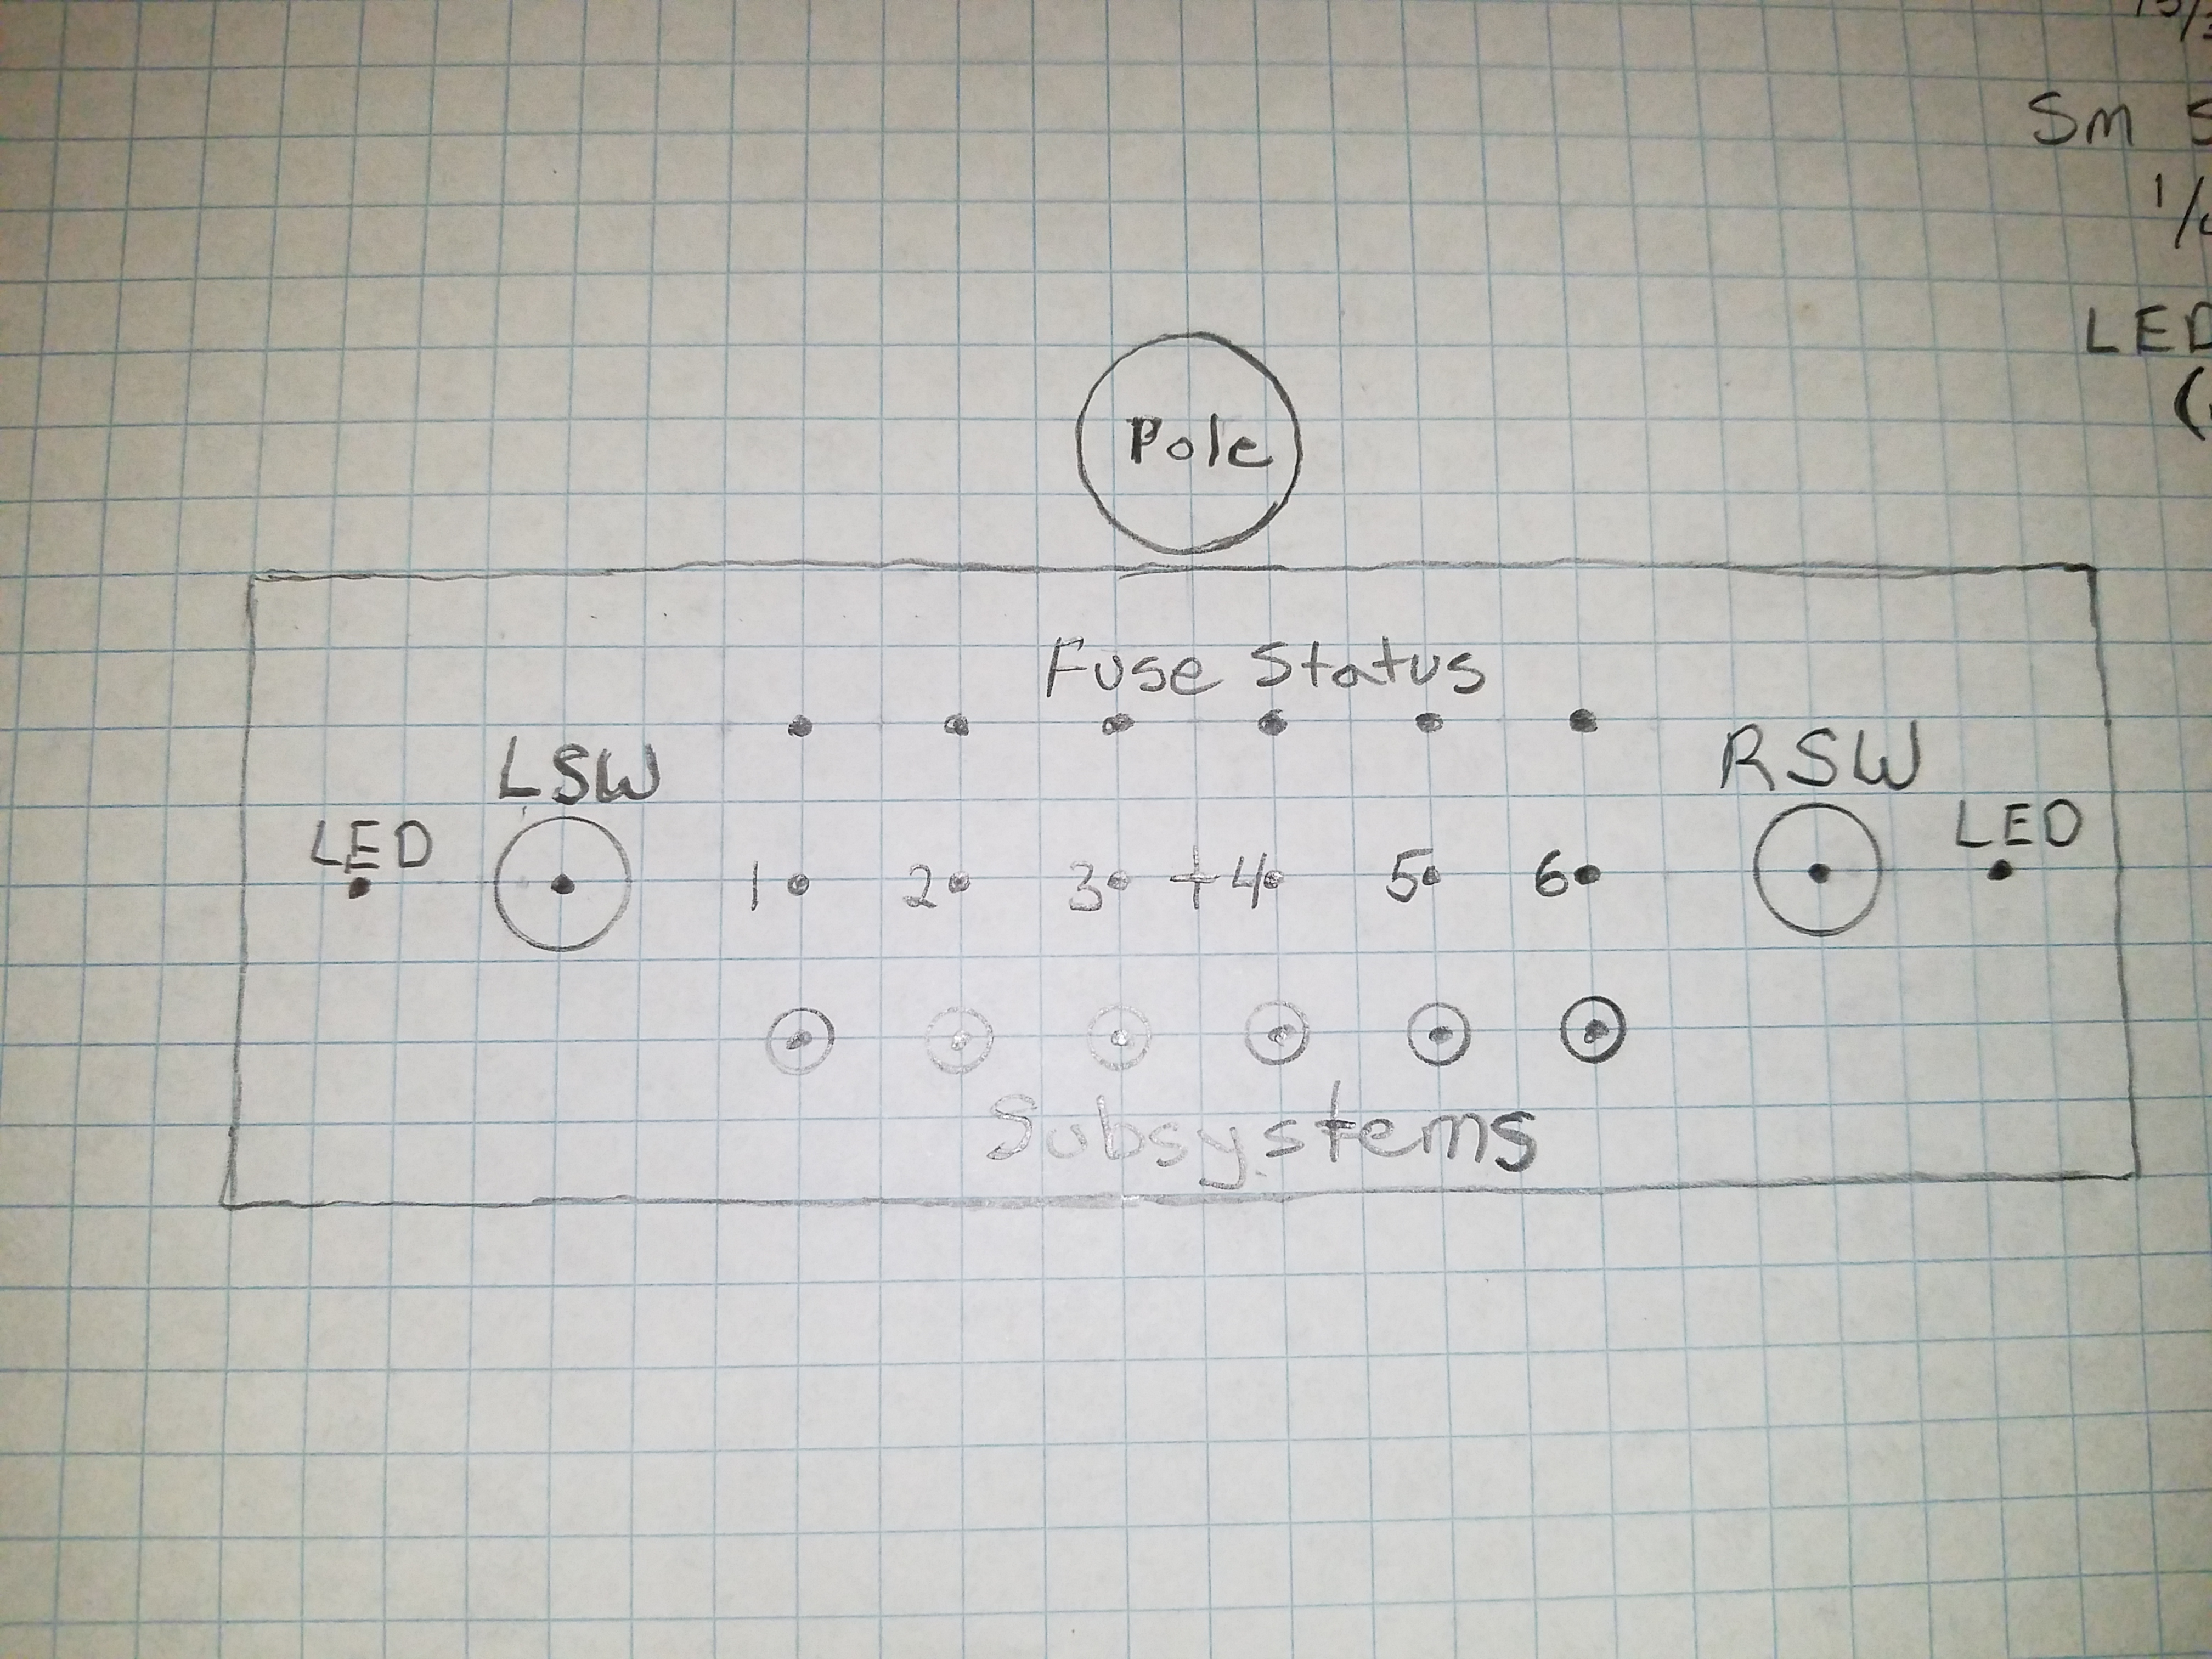 Sm
LED
Pole
Fuse Status
LSW
RSW
LED
LED
1 2 3 4 5 6
Subsystems